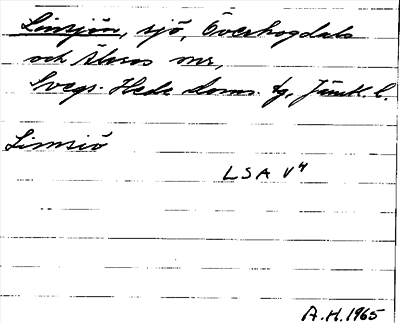 Linsjön, sjö, Överhogdals
och Älvros snr,
Svegs. Hede doms. tg, Jämtl. l.
Limsiö
LSA V4
A.H. 1965